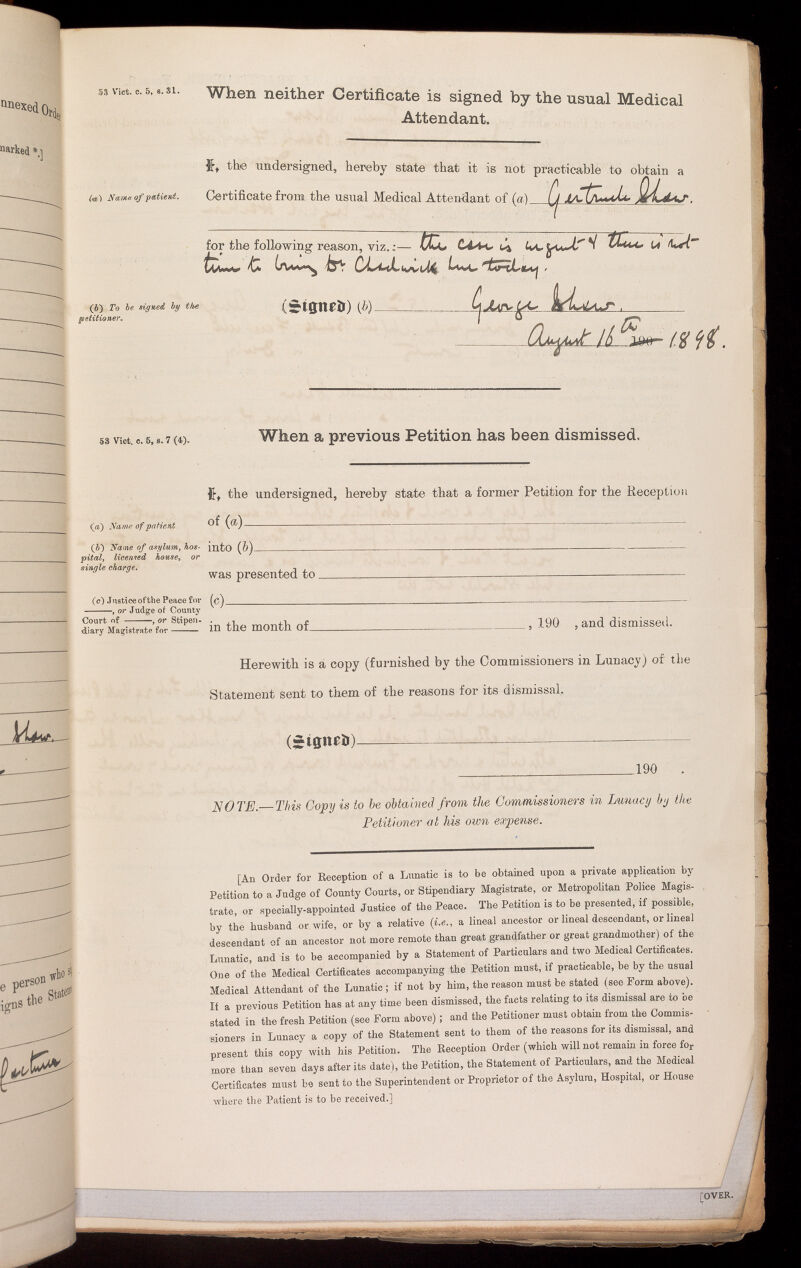 nnexed Orde
narked *.]
53 Vict. c. 5, s. 31.
When neither Certificate is signed by the usual Medical
Attendant.
I, the undersigned, hereby state that it is not practicable to obtain a
(a) Name of patient.
Certificate from the usual Medical Attendant of (a) Gertrude Shaw.
for the following reason, viz.:— the case is urgent & there is not
time to bring Dr Chadwick here today.
(b) To be signed by the
petitioner.
(Signed) (b) George Shaw.
August 16th 190 1898.
53 Vict. c. 5, s. 7 (4).
When a previous Petition has been dismissed.
I, the undersigned, hereby state that a former Petition for the Reception
(a) Name of patient
of (a)
(b) Name of asylum, hos-
pital, licensed house, or
single charge.
into (b)
was presented to
(c) Justice of the Peace for
——, or Judge of County
Court of ——, or Stipen-
diary Magistrate for ——
(c)
in the month of , 190 , and dismissed.
Herewith is a copy (furnished by the Commissioners in Lunacy) of the
Statement sent to them of the reasons for its dismissal.
Shaw.
(Signed)
190 .
NOTE.—This Copy is to be obtained from the Commissioners in Lunacy by the
Petitioner at his own expense.
[An Order for Reception of a Lunatic is to be obtained upon a private application by
Petition to a Judge of County Courts, or Stipendiary Magistrate, or Metropolitan Police Magis-
trate, or specially-appointed Justice of the Peace. The Petition is to be presented, if possible,
by the husband or wife, or by a relative (i.e., a lineal ancestor or lineal descendant, or lineal
descendant of an ancestor not more remote than great grandfather or great grandmother) of the
Lunatic, and is to be accompanied by a Statement of Particulars and two Medical Certificates.
One of the Medical Certificates accompanying the Petition must, if practicable, be by the usual
Medical Attendant of the Lunatic; if not by him, the reason must be stated (see Form above).
If a previous Petition has at any time been dismissed, the facts relating to its dismissal are to be
stated in the fresh Petition (see Form above); and the Petitioner must obtain from the Commis-
sioners in Lunacy a copy of the Statement sent to them of the reasons for its dismissal, and
present this copy with his Petition. The Reception Order (which will not remain in force for
more than seven days after its date), the Petition, the Statement of Particulars, and the Medical
Certificates must be sent to the Superintendent or Proprietor of the Asylum, Hospital, or House
where the Patient is to be received.]
e person who si
igns the Statem
[OVER.